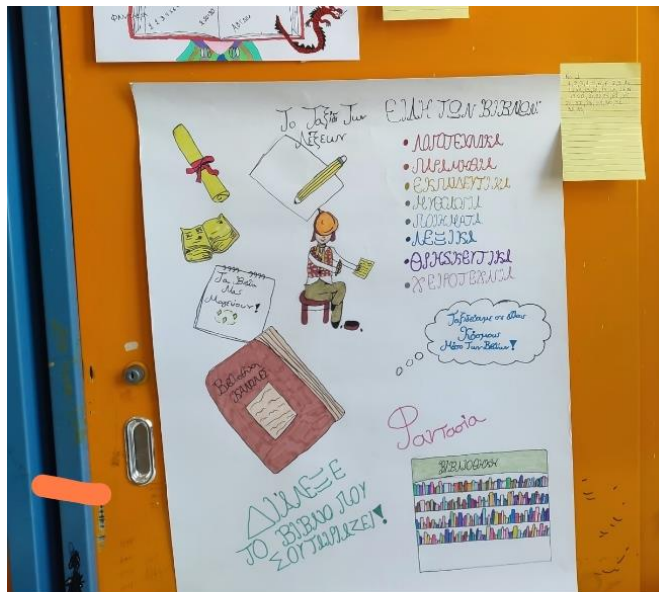 Το Ταξίδι Των
Λέξεων
ΕΙΔΗ ΤΩΝ ΒΙΒΛΙΩΝ:
• ΛΟΓΟΤΕΧΝΙΚΑ
• ΠΑΡΑΜΥΘΙΑ
• ΕΚΠΑΙΔΕΥΤΙΚΑ
• ΜΥΘΟΛΟΓΙΑ
• ΠΟΙΗΜΑΤΑ
• ΛΕΞΙΚΑ
• ΘΡΗΣΚΕΥΤΙΚΑ
• ΧΕΙΡΟΤΕΧΝΙΑ
Τα Βιβλία
Μας
Μαγεύουν!
Ταξιδεύουμε σε άλλους
Κόσμους
Μέσο Των Βιβλίων!
Φαντασία
ΒΙΒΛΙΟΘΗΚΗ
ΔΙΑΛΕΞΕ
ΤΟ ΒΙΒΛΙΟ ΠΟΥ
ΣΟΥ ΤΑΙΡΙΑΖΕΙ!